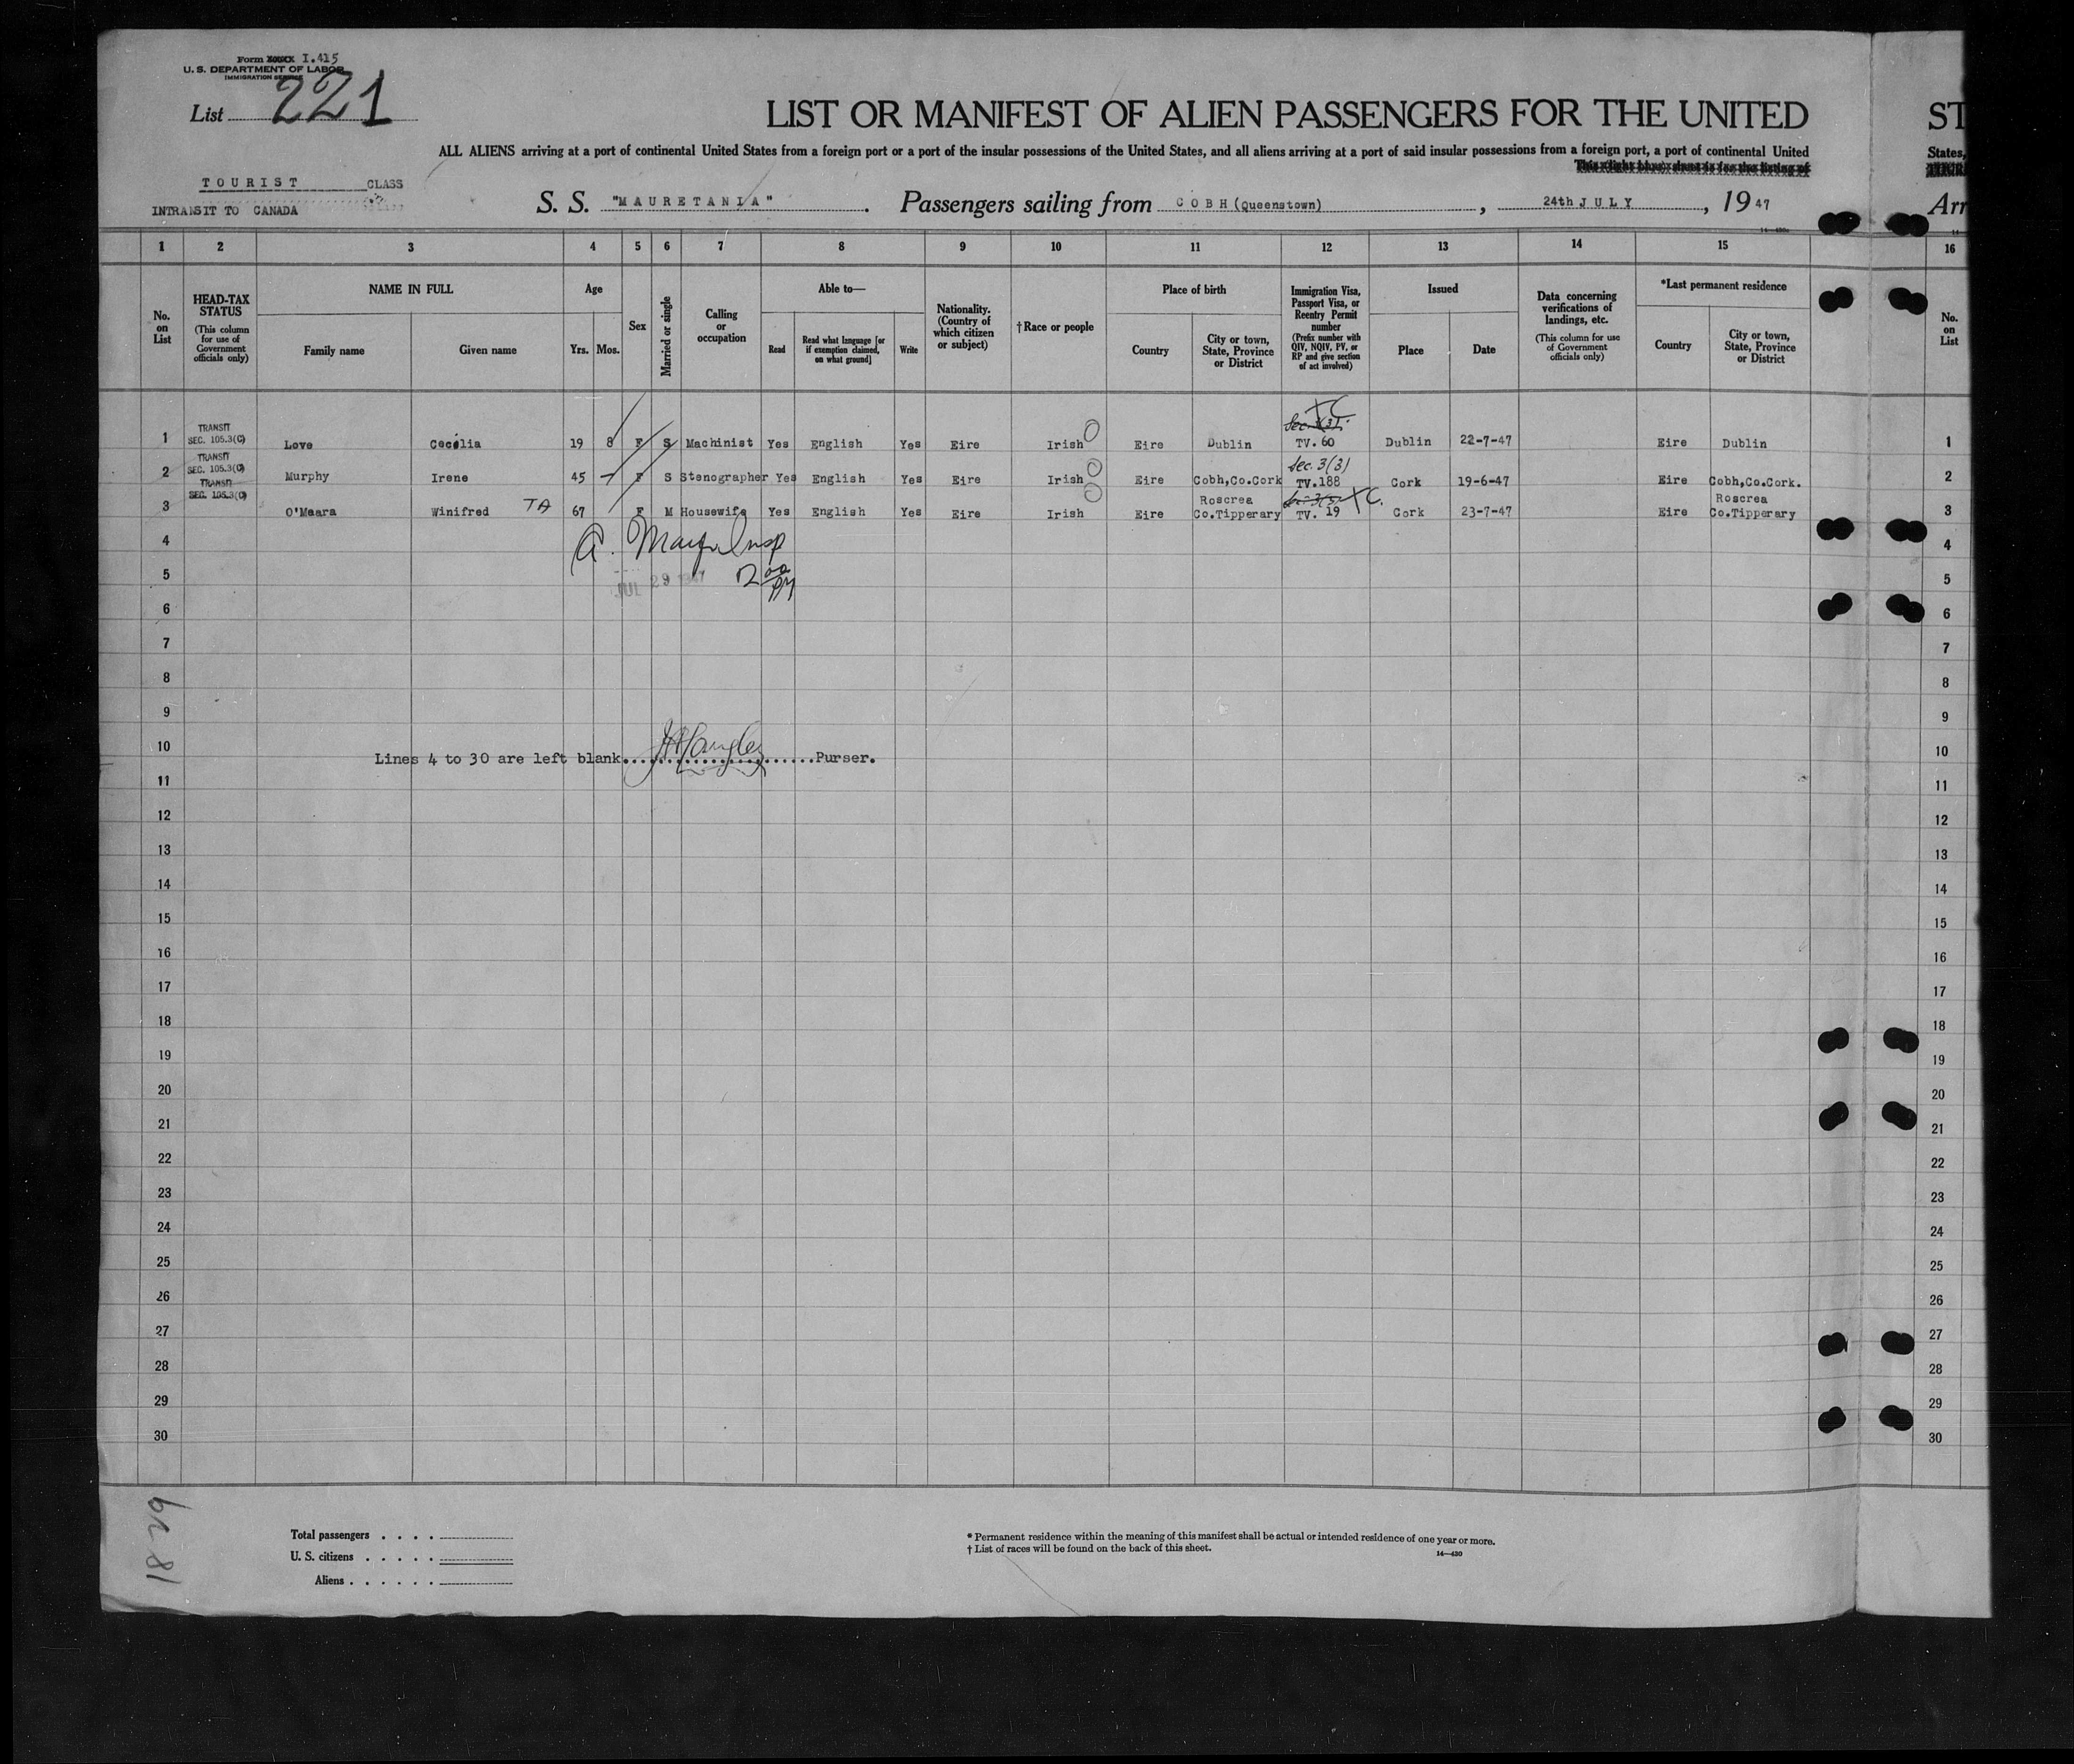 Form I.415
U. S. DEPARTMENT OF LABOR
IMMIGRATION SERVICE
List 221
LIST OR MANIFEST OF ALIEN PASSENGERS FOR THE UNITED
ST
ALL ALIENS arriving at a port of continental United States from a foreign port or a port of the insular possessions of the United States, and all aliens arriving at a port of said insular possessions from a foreign port, a port of continental United
States,
TOURIST CLASS
INTRANSIT TO CANADA
S. S. "MAURETANIA". Passengers sailing from COBH (Queenstown), 24th JULY, 1947
Arr
1 2 3 4 5 6 7 8 9 10 11 12 13 14 15 16
No. on List
HEAD-TAX STATUS
(This column for use of Government officials only)
NAME IN FULL
Family name Given name
Age
Yrs. Mos.
Sex
Married or single
Calling or occupation
Able to—
Read
Read what language [or if exemption claimed, on what ground]
Write
Nationality. (Country of which citizen or subject)
†Race or people
Place of birth
Country
City or town, State, Province or District
Immigration Visa, Passport Visa, or Reentry Permit number
(Prefix number with QIV, NQIV, PV, or RP and give section of act involved)
Issued
Place Date
Data concerning verifications of landings, etc.
(This column for use of Government officials only)
*Last permanent residence
Country
City or town, State, Province or District
No. on List
TRANSIT SEC. 105.3(C)
1 Love Cecelia 19 8 F S Machinist Yes English Yes Eire Irish Eire Dublin TV. 60 Dublin 22-7-47 Eire Dublin 1
TRANSIT SEC. 105.3(C) Sec. 3(3)
2 Murphy Irene 45 F S Stenographer Yes English Yes Eire Irish Eire Cobh,Co.Cork TV.188 Cork 19-6-47 Eire Cobh,Co.Cork. 2
TRANSIT SEC. 105.3(C)
3 O'Meara Winifred TA 67 F M Housewife Yes English Yes Eire Irish Eire Roscrea Co.Tipperary TV. 19 Cork 23-7-47 Eire Roscrea Co.Tipperary 3
4 4
5 JUL 29 1947 2 00 PM 5
6 6
7 7
8 8
9 9
10 10
Lines 4 to 30 are left blank. Purser.
11 11
12 12
13 13
14 14
15 15
16 16
17 17
18 18
19 19
20 20
21 21
22 22
23 23
24 24
25 25
26 26
27 27
28 28
29 29
30 30
Total passengers . . . .
U. S. citizens . . . . .
Aliens . . . . . .
* Permanent residence within the meaning of this manifest shall be actual or intended residence of one year or more.
† List of races will be found on the back of this sheet.
14—430